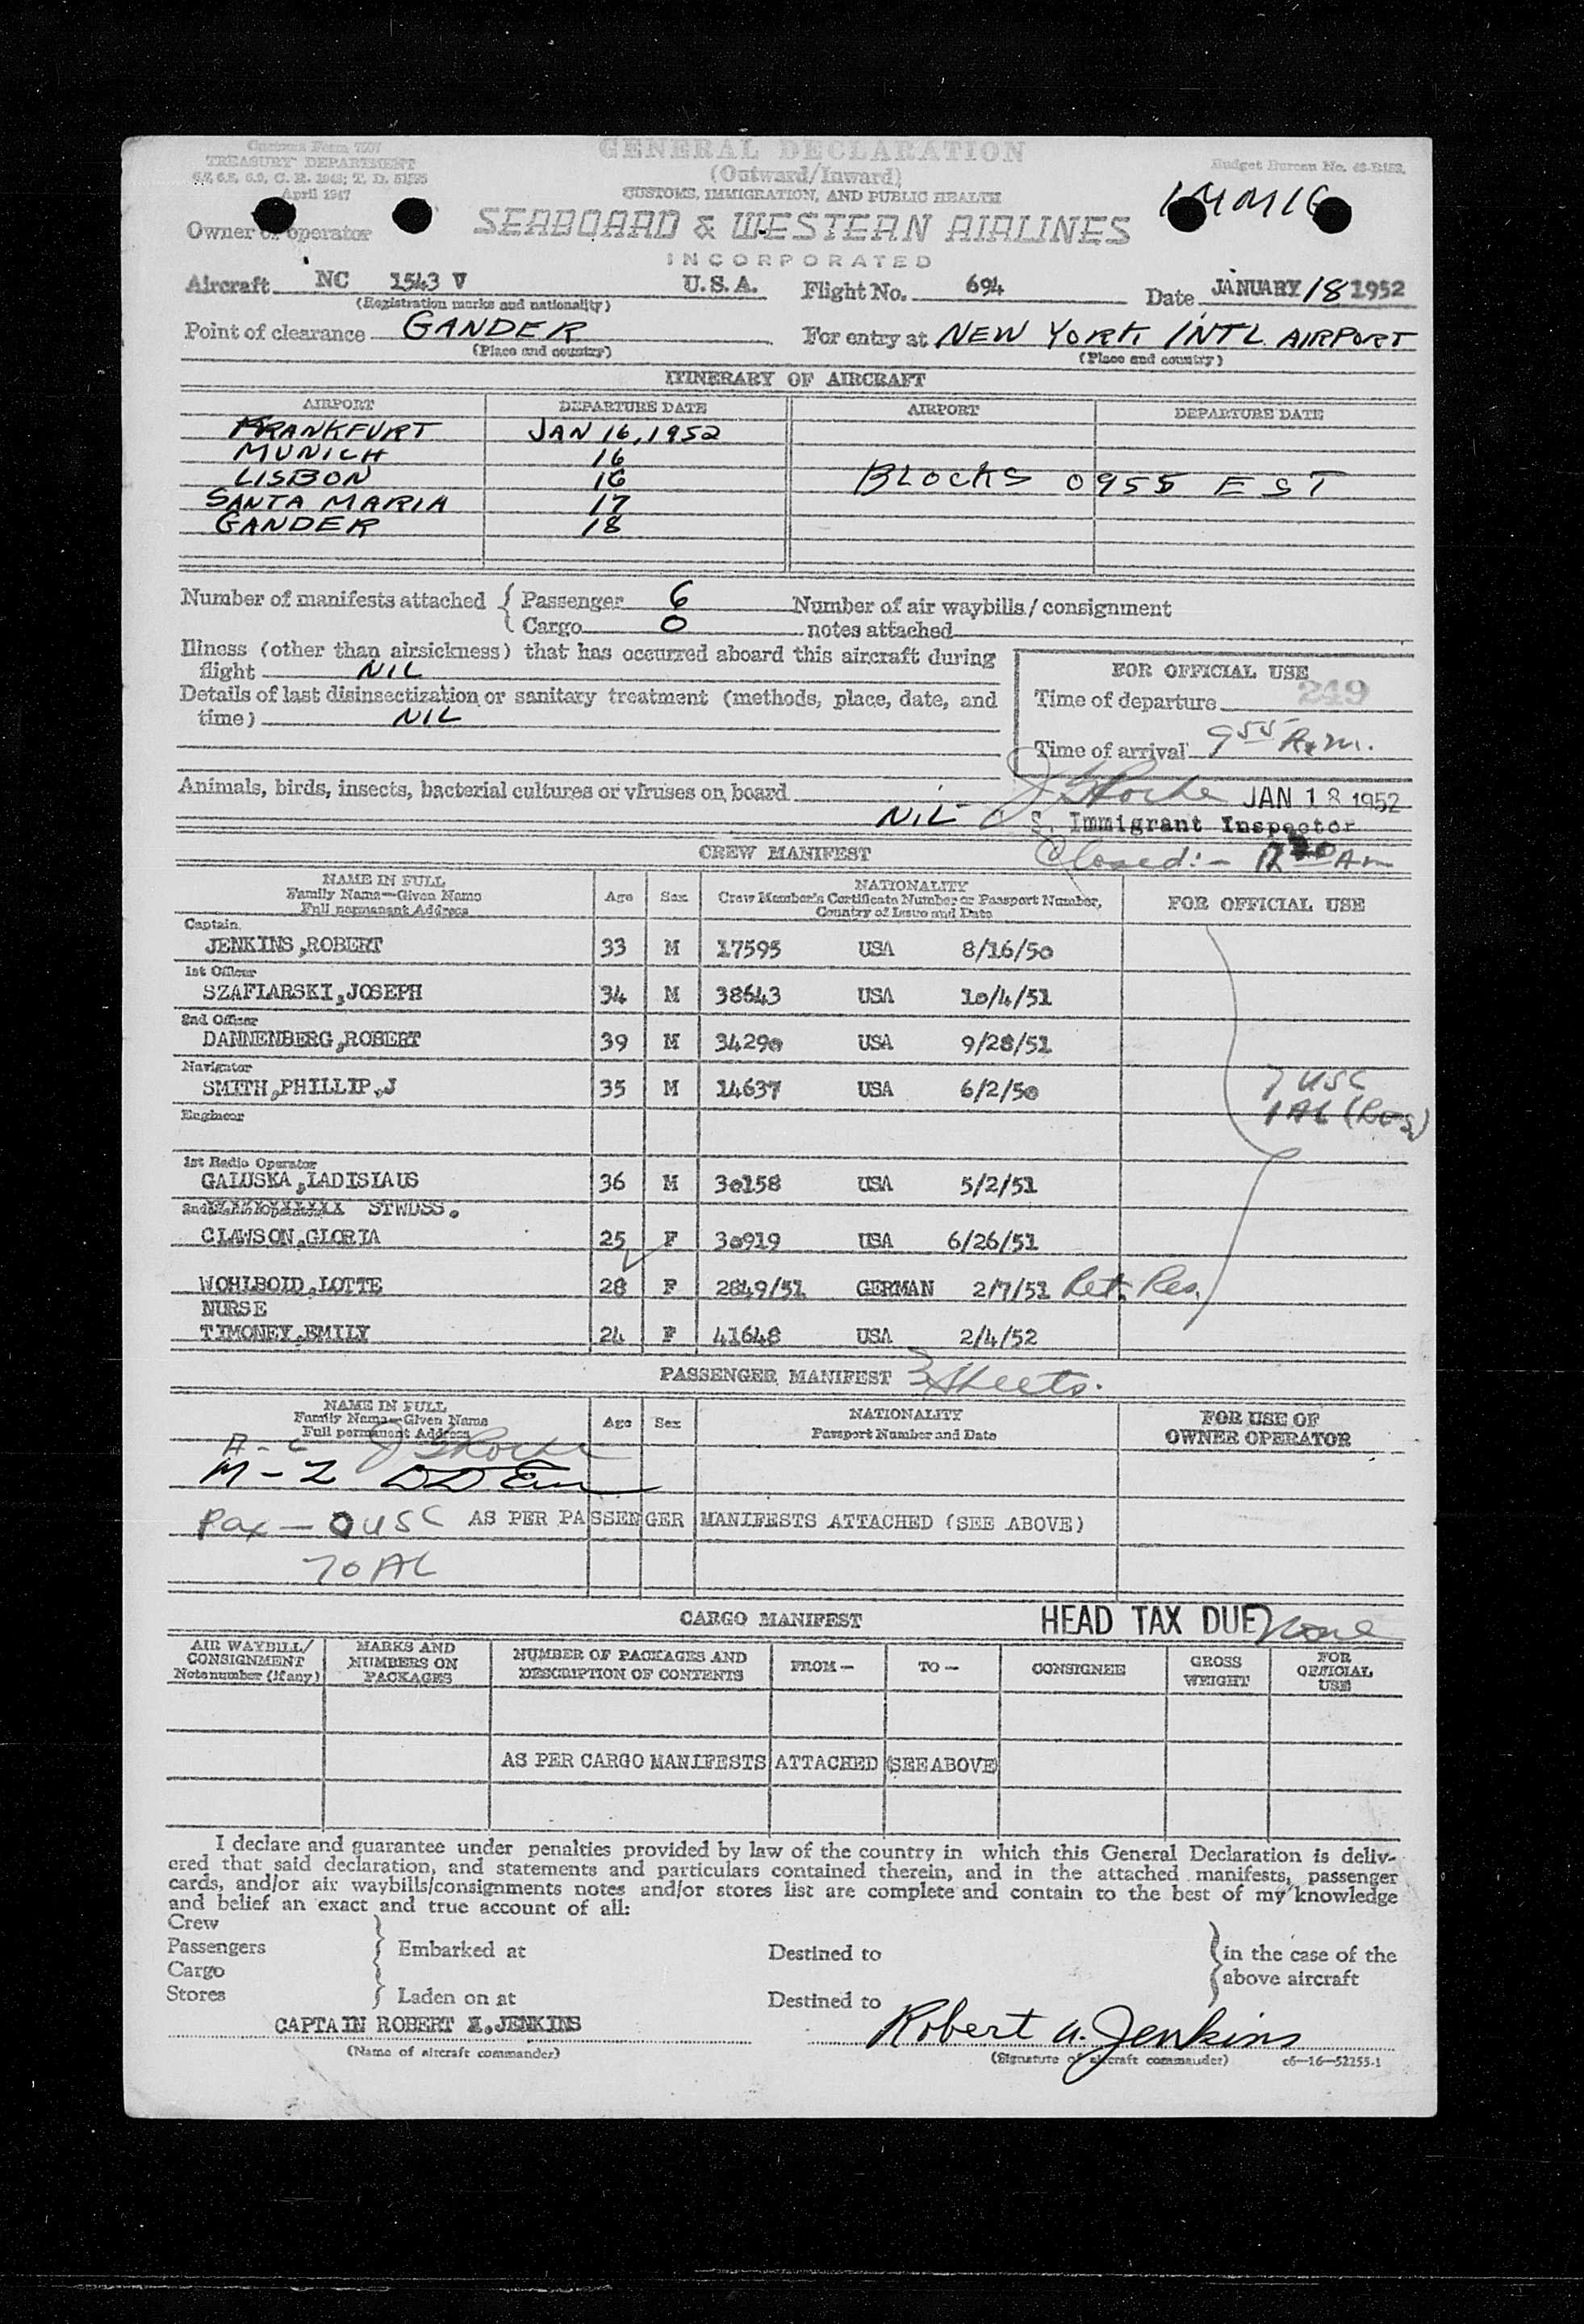 Customs Form 7507
TREASURY DEPARTMENT
April 1947
GENERAL DECLARATION
(Outward/Inward)
CUSTOMS, IMMIGRATION, AND PUBLIC HEALTH
Budget Bureau No.
Owner or operator
SEABOARD & WESTERN AIRLINES
INCORPORATED
Aircraft NC 1543 V U.S.A. Flight No. 694 Date JANUARY 18 1952
(Registration marks and nationality)
Point of clearance GANDER For entry at NEW YORK INTL AIRPORT
(Place and country) (Place and country)
ITINERARY OF AIRCRAFT
AIRPORT DEPARTURE DATE AIRPORT DEPARTURE DATE
FRANKFURT JAN 16, 1952
MUNICH 16
LISBON 16 BLOCKS 0955 EST
SANTA MARIA 17
GANDER 18
Number of manifests attached { Passenger 6 Number of air waybills / consignment
Cargo 0 notes attached
Illness (other than airsickness) that has occurred aboard this aircraft during
flight NIL
FOR OFFICIAL USE
249
Details of last disinsectization or sanitary treatment (methods, place, date, and
time) NIL
Time of departure
Time of arrival 9 55 A.m.
Animals, birds, insects, bacterial cultures or viruses on board
NIL
JAN 18 1952
S. Immigrant Inspector
CREW MANIFEST Closed:- Am
NAME IN FULL
Family Name—Given Name
Full permanent Address
Age Sex
NATIONALITY
Crew Member's Certificate Number or Passport Number,
Country of Issue and Date
FOR OFFICIAL USE
Captain
JENKINS,ROBERT 33 M 17595 USA 8/16/50
1st Officer
SZAFLARSKI,JOSEPH 34 M 38643 USA 10/4/51
2nd Officer
DANNENBERG,ROBERT 39 M 34290 USA 9/28/51
Navigator
SMITH,PHILLIP,J 35 M 14637 USA 6/2/50
7 USC
1 AL (Res)
Engineer
1st Radio Operator
GALUSKA,LADISLAUS 36 M 30158 USA 5/2/51
STWDSS.
CLAWSON,GLORIA 25 F 30919 USA 6/26/51
WOHLBOLD,LOTTE 28 F 2849/51 GERMAN 2/7/51 Ret. Res.
NURSE
TIMONEY,EMILY 24 F 41648 USA 2/4/52
PASSENGER MANIFEST 3 Sheets.
NAME IN FULL
Family Name—Given Name
Full permanent Address
Age Sex
NATIONALITY
Passport Number and Date
FOR USE OF
OWNER OPERATOR
A - L
M - Z
Pax — 0 USC AS PER PASSENGER MANIFESTS ATTACHED (SEE ABOVE)
70 AL
CARGO MANIFEST HEAD TAX DUE None
AIR WAYBILL/
CONSIGNMENT
Note number (if any)
MARKS AND
NUMBERS ON
PACKAGES
NUMBER OF PACKAGES AND
DESCRIPTION OF CONTENTS
FROM — TO — CONSIGNEE
GROSS
WEIGHT
FOR
OFFICIAL
USE
AS PER CARGO MANIFESTS ATTACHED (SEE ABOVE)
I declare and guarantee under penalties provided by law of the country in which this General Declaration is deliv-
ered that said declaration, and statements and particulars contained therein, and in the attached manifests, passenger
cards, and/or air waybills/consignments notes and/or stores list are complete and contain to the best of my knowledge
and belief an exact and true account of all:
Crew
Passengers } Embarked at Destined to } in the case of the
Cargo above aircraft
Stores } Laden on at Destined to
CAPTAIN ROBERT JENKINS Robert A. Jenkins
(Name of aircraft commander) (Signature of aircraft commander) c6—16—52255-1